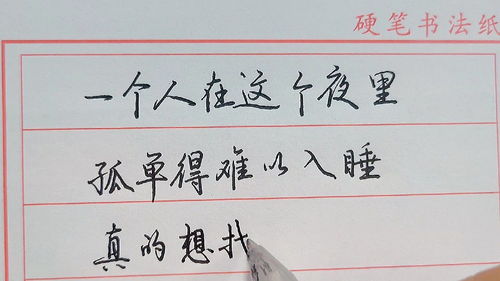 硬笔书法纸
一个人在这个夜里
孤单得难以入睡
真的想找